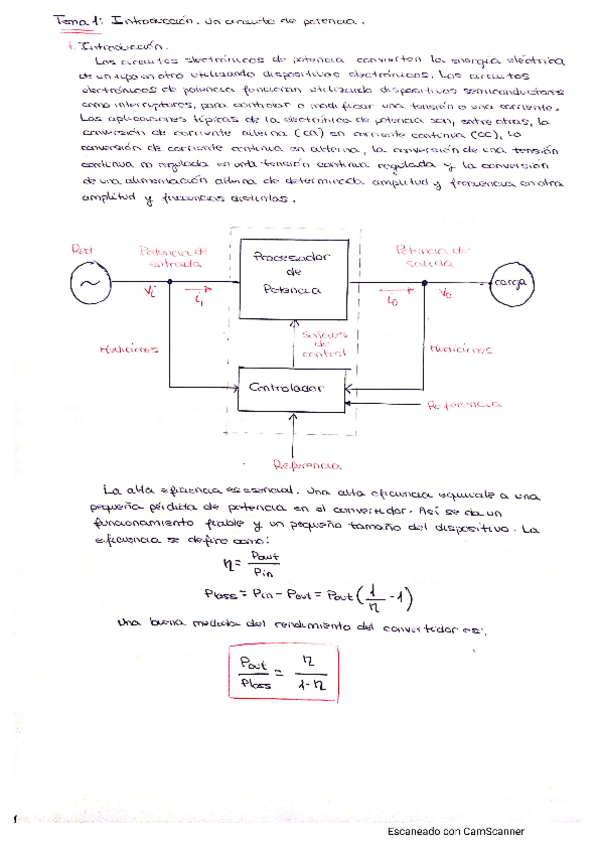 Tema 1: Introducción. Un circuito de potencia.
1. Introducción.
Los circuitos electrónicos de potencia convierten la energía eléctrica
de un tipo en otro utilizando dispositivos electrónicos. Los circuitos
electrónicos de potencia funcionan utilizando dispositivos semiconductores
como interruptores, para controlar o modificar una tensión o una corriente.
Las aplicaciones típicas de la electrónica de potencia son, entre otras, la
conversión de corriente alterna (CA) en corriente continua (CC), la
conversión de corriente continua en alterna, la conversión de una tensión
continua no regulada en una tensión continua regulada y la conversión
de una alimentación alterna de determinada amplitud y frecuencia en otra
amplitud y frecuencias distintas.
Red
Potencia de
entrada
Procesador
de
Potencia
Potencia de
salida
~
Vi
i1
io
Vo
carga
Mediciones
Señales
de
control
Mediciones
Controlador
Referencia
Referencia
La alta eficiencia es esencial. Una alta eficiencia equivale a una
pequeña pérdida de potencia en el convertidor. Así se da un
funcionamiento fiable y un pequeño tamaño del dispositivo. La
eficiencia se define como:
η = Pout / Pin
Ploss = Pin - Pout = Pout (1/η - 1)
Una buena medida del rendimiento del convertidor es:
Pout / Ploss = η / 1-η
Escaneado con CamScanner